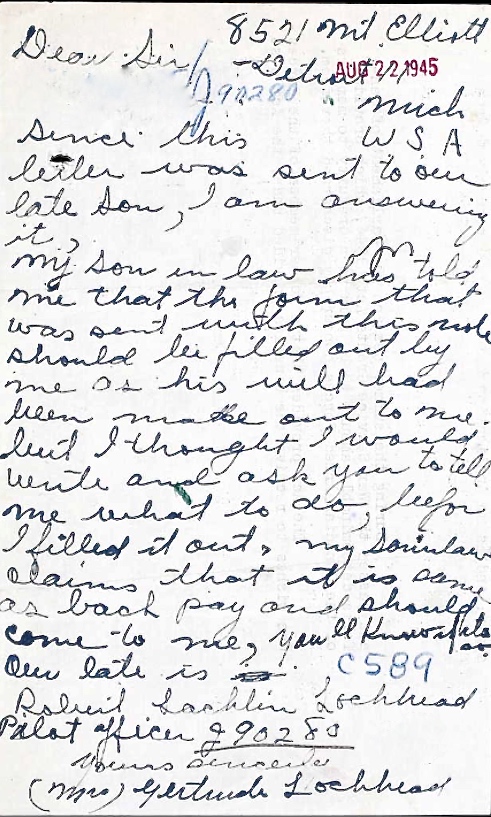 8521 Mt Elliott
Dear Sir
Detroit
AUG 22 1945
J90280
Mich
Since this USA
letter was sent to our
late son, I am answering
it,
my son in law has told
me that the form that
was sent with this note
should be filled out by
me as his will had
been made out to me.
but I thought I would
write and ask you to tell
me what to do, befor
I filled it out, my soninlaw
claims that it is same
as back pay and should
come to me, you'll know
Our late is
C589
Robert Lachlin Lochhead
Pilot officer J90280
Yours sincerely
(Mrs) Gertrude Lochhead